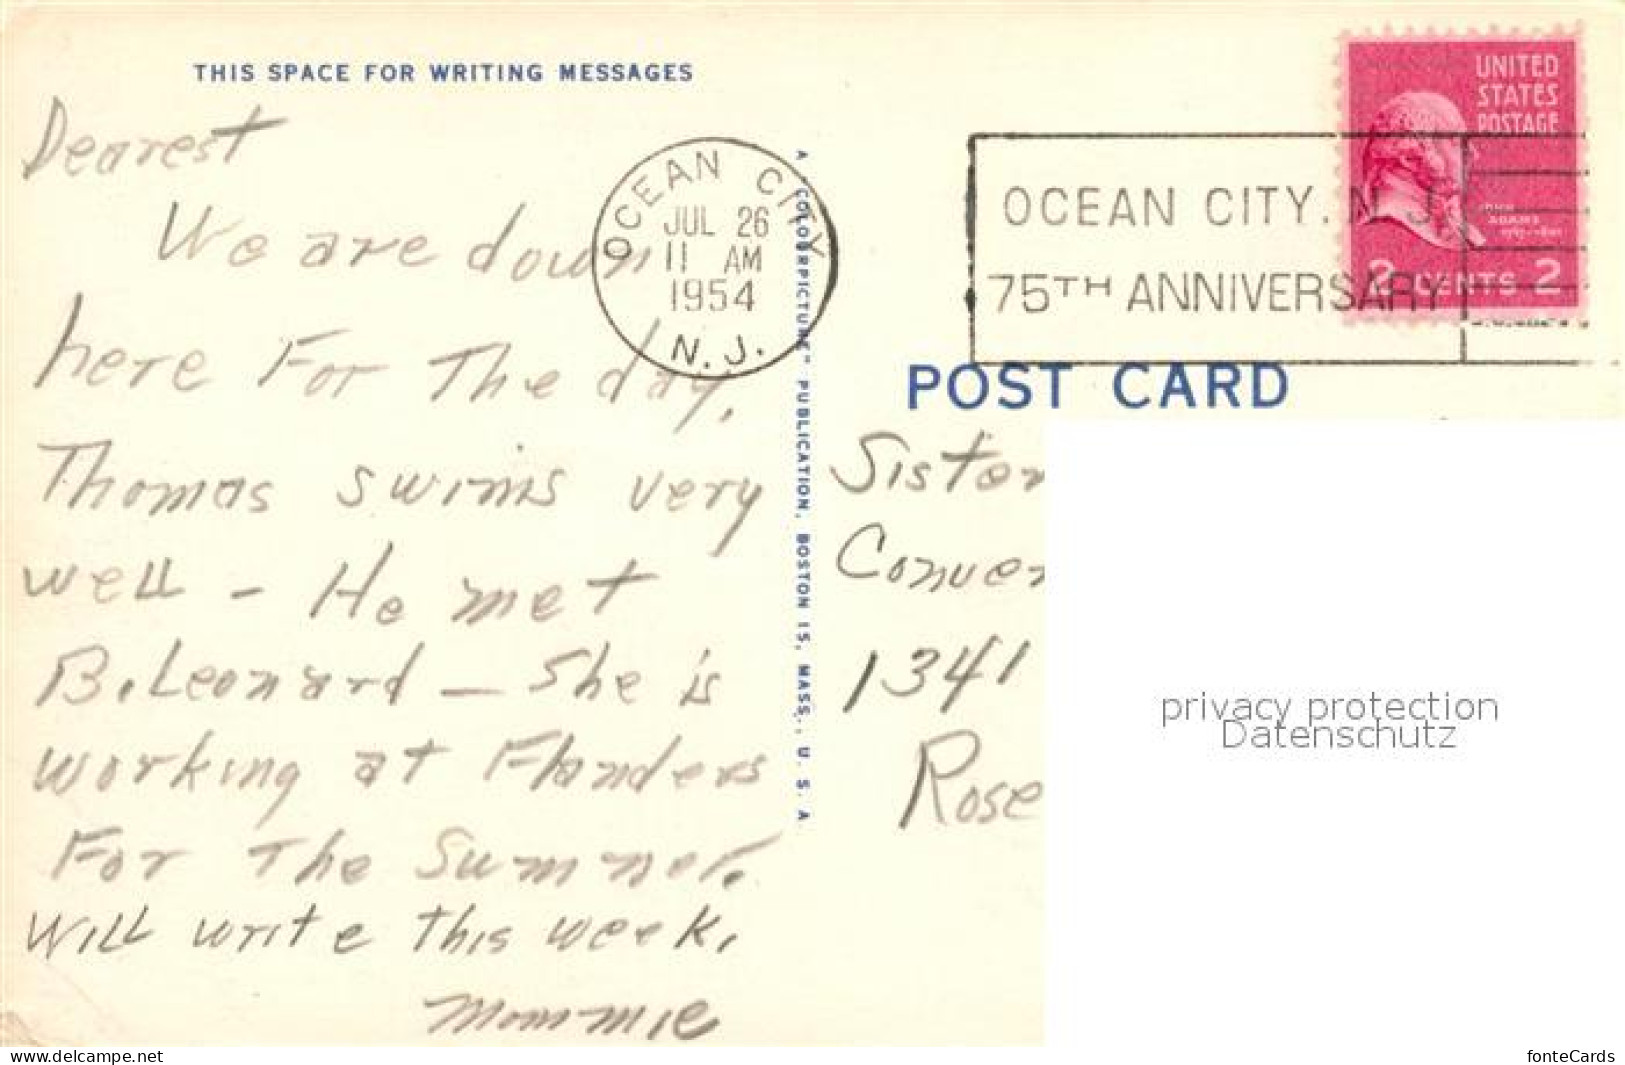 THIS SPACE FOR WRITING MESSAGES
Dearest
We are down
here For The day.
Thomas swims very
well - He met
B. Leonard - She is
working at Flanders
For The Summer.
Will write this week.
Mommie
OCEAN CITY
JUL 26
11 AM
1954
N.J.
A "COLORPICTURE" PUBLICATION, BOSTON 15, MASS., U.S.A.
OCEAN CITY. N.J.
75TH ANNIVERSARY
UNITED
STATES
POSTAGE
JOHN
ADAMS
2 CENTS 2
POST CARD
Sister
Conven
1341
Rose
privacy protection
Datenschutz
www.delcampe.net
fonteCards